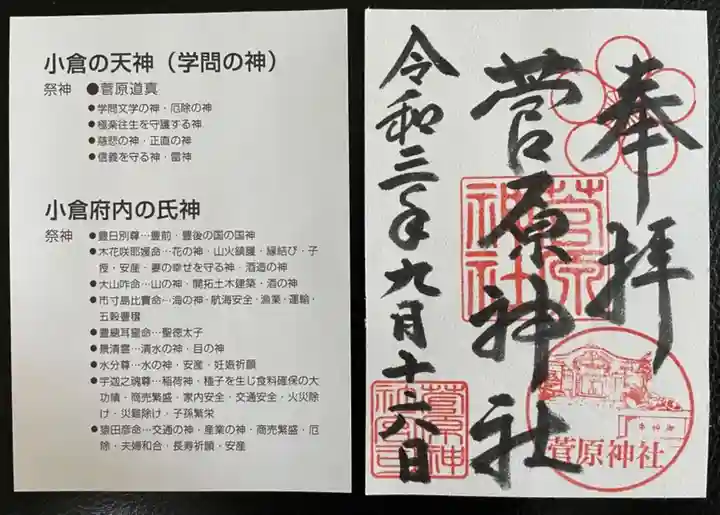 小倉の天神（学問の神）
祭神 ●菅原道真
●学問文学の神・厄除の神
●極楽往生を守護する神
●慈悲の神・正直の神
●信義を守る神・雷神
小倉府内の氏神
祭神 ●豊日別尊…豊前・豊後の国の国神
●木花咲耶媛命…花の神・山火鎮護・縁結び・子
授・安産・妻の幸せを守る神・酒造の神
●大山咋命…山の神・開拓土木建築・酒の神
●市寸島比賣命…海の神・航海安全・漁業・運輸・
五穀豊穣
●豊聰耳皇命…聖徳太子
●景清霊…清水の神・目の神
●水分尊…水の神・安産・妊娠祈願
●宇迦之魂尊…稲荷神・種子を生じ食料確保の大
功績・商売繁盛・家内安全・交通安全・火災除
け・災難除け・子孫繁栄
●猿田彦命…交通の神・産業の神・商売繁盛・厄
除・夫婦和合・長寿祈願・安産
奉拝
菅原神社
令和三年九月十六日
菅原
神社
菅原神社